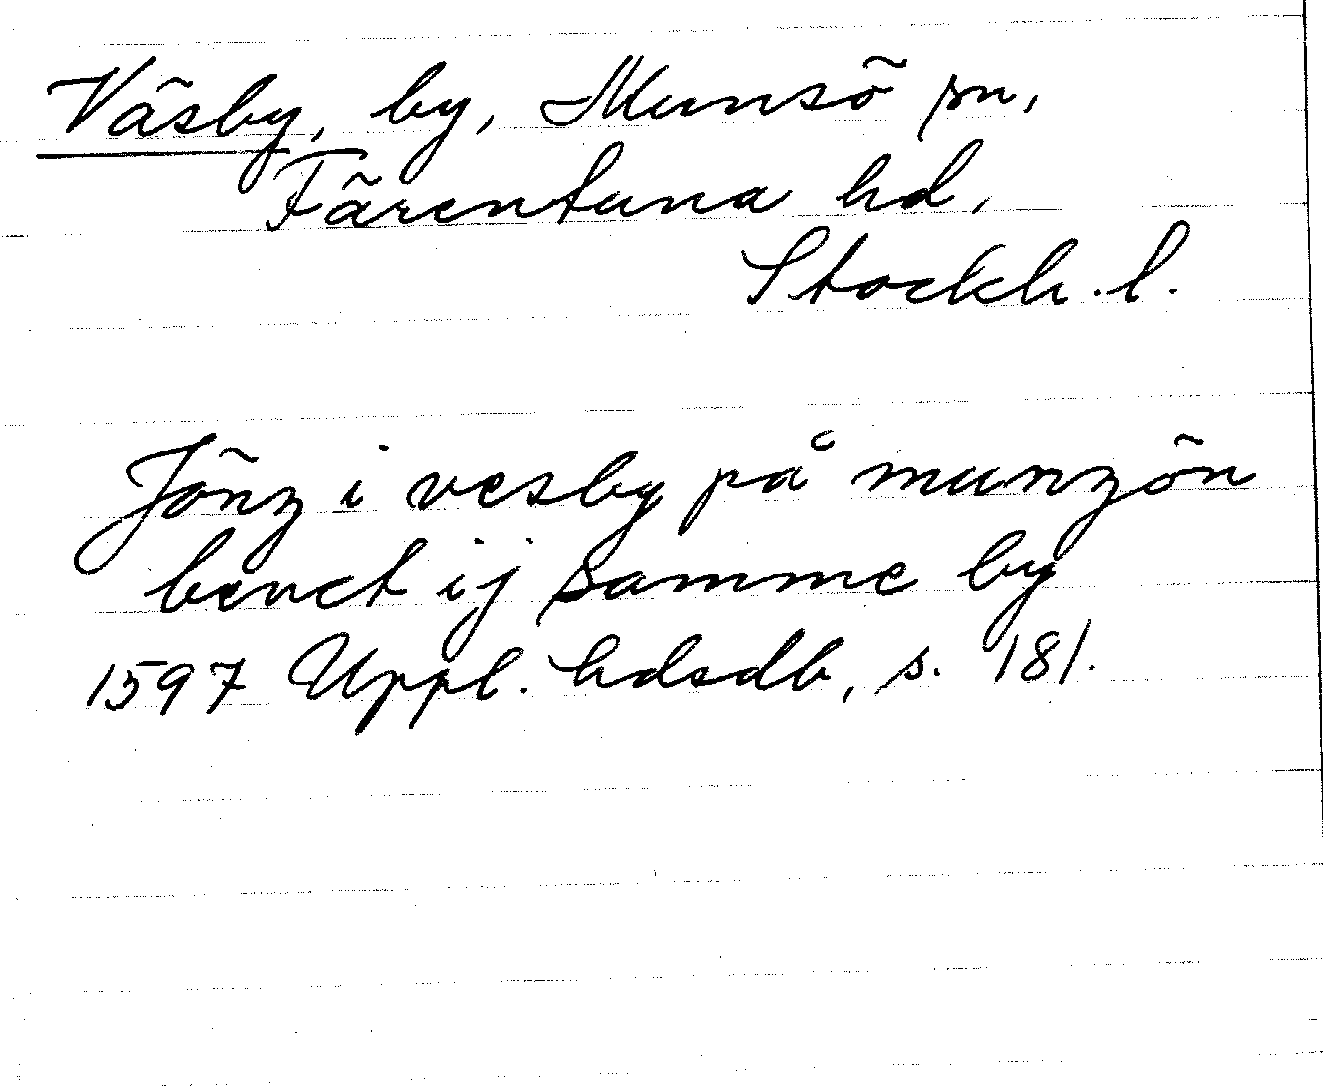 Väsby, by, Munsö sn,
Färentuna hd,
Stockh. l.
Jönz i vesby på munzön
benct ij samme by
1597 Uppl. hdsdb, s. 181.